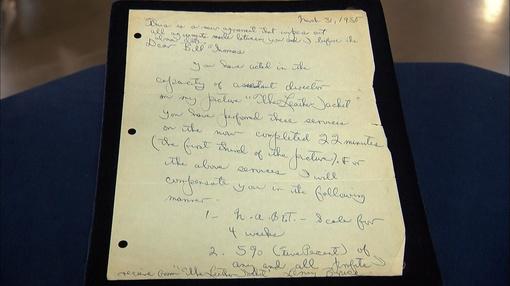 March 31, 1955
This is a new agreement that wipes out
all agreements made between you and I before the
Dear Bill Thomas
You have acted in the
capacity of assistant director
on my picture "The Leather Jacket"
You have performed these services
on the now completed 22 minutes
(the first third of the picture). For
the above services I will
compensate you in the following
manner
1 - Scale for
4 weeks
2. 5% (Five Percent) of
any and all profits I
receive from "The Leather Jacket" Lenny Bruce